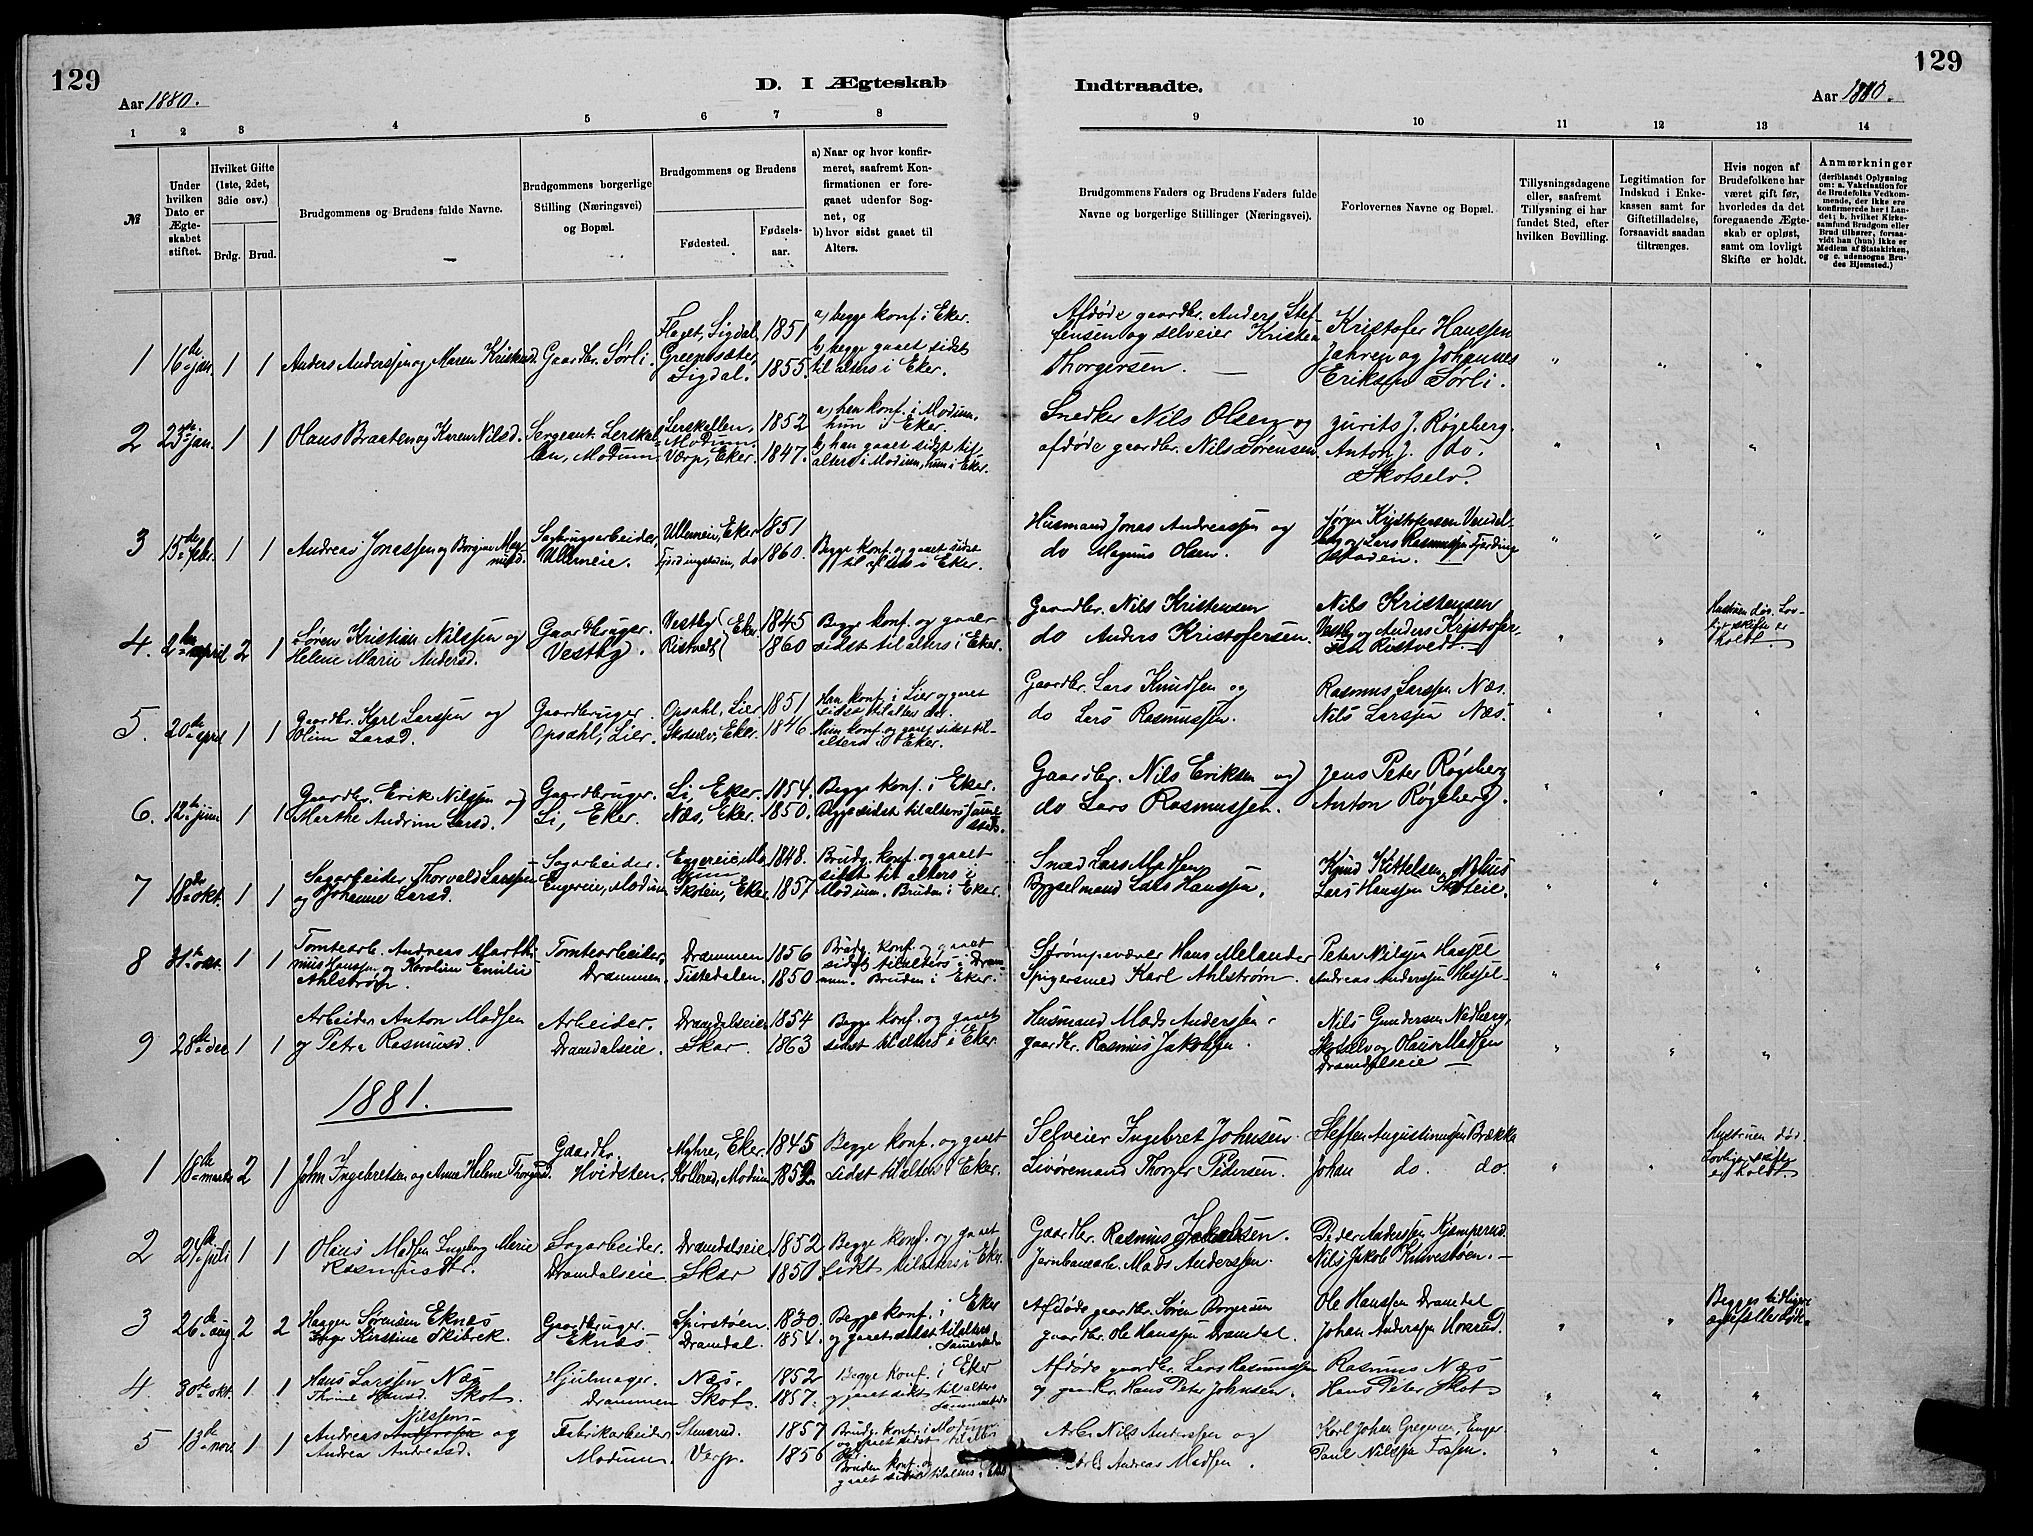 129
D. I Ægteskab
Indtraadte.
129
Aar 1880.
Aar 1880.
1 2 3 4 5 6 7 8 9 10 11 12 13 14
№
Under hvilken Dato er Ægteskabet stiftet.
Hvilket Gifte (1ste, 2det, 3die osv.)
Brdg. Brud.
Brudgommens og Brudens fulde Navne.
Brudgommens borgerlige Stilling (Næringsvei) og Bopæl.
Brudgommens og Brudens
Fødested.
Fødselsaar.
a) Naar og hvor konfirmeret, saafremt Konfirmationen er foregaaet udenfor Sognet, og
b) hvor sidst gaaet til Alters.
Brudgommens Faders og Brudens Faders fulde Navne og borgerlige Stillinger (Næringsvei).
Forlovernes Navne og Bopæl.
Tillysningsdagene eller, saafremt Tillysning ei har fundet Sted, efter hvilken Bevilling.
Legitimation for Indskud i Enkekassen samt for Giftetilladelse, forsaavidt saadan tiltrænges.
Hvis nogen af Brudefolkene har været gift før, hvorledes da det foregaaende Ægteskab er opløst, samt om lovligt Skifte er holdt.
Anmærkninger (deriblandt Oplysning om: a. Vakcination for de Brudefolks Vedkommende, der ikke ere konfirmerede her i Landet; b. hvilket Kirkesamfund Brudgom eller Brud tilhører, forsaavidt han (hun) ikke er Medlem af Statskirken, og c. udensogns Brudes Hjemsted.)
1 16de jan. 1 1 Anders Anderssen og Maren Kristensd. Gaardbr. Sørli.
Flaget, Sigdal 1851
Sigdal. 1855.
a) begge konf. i Eker.
b) begge gaaet sidst
til alters i Eker.
Afdøde gaardbr. Anders Stef-
fensen og selveier Kristen
Thorgersen. —
Kristofer Hanssen
Jahren og Johannes
Eriksen Sørli.
2 23de jan. 1 1 Olaus Braaten og Karen Nilsd.
Sergeant. Lerskal-
len, Modum.
Lerskallen, Modum. 1852
Værp, Eker. 1847.
a) han konf. i Modum,
hun i Eker.
b) han gaaet sidst til
alters i Modum, hun i Eker.
Snedker Nils Olsen og
afdøde gaardbr. Nils Sørensen.
J. Røgeberg.
Anton J. do.
Skotselv.
3 15de febr. 1 1 Andreas Jonassen og Borgine Mag-
nusd.
Sagbrugsarbeider,
Ullerneie.
Ullerneie, Eker 1851
Fjordingstaden, do 1860.
Begge konf. og gaaet sidst
til alters i Eker.
Husmand Jonas Andreassen og
do Magnus Olsen.
Jørgen Kristofersen Vendel-
borg og Lars Rasmussen Fjerding-
staden.
4. 2den april 2 1 Søren Kristian Nilssen og
Helene Marie Andersd.
Gaardbruger.
Vestby.
Vestby Eker. 1845
Ristvedt 1860
Begge konf. og gaaet
sidst til alters i Eker.
Gaardbr. Nils Kristensen
do Anders Kristofersen.
Nils Kristensen
Vestby og Anders Kristofer-
sen Ristvedt.
Hustruen død. Lov-
ligt skifte er
holdt.
5. 20de april 1 1 Gaardbr. Karl Larssen og
Oline Larsd.
Gaardbruger.
Opsahl, Lier.
Opsahl, Lier 1851
Skotselv, Eker. 1846.
Han konf. i Lier og gaaet
sidst til alters der.
Hun konf. og gaaet sidst til
alters i Eker.
Gaardbr. Lars Knudsen og
do Lars Rasmussen.
Rasmus Larssen Næs.
Nils Larssen Næs.
6. 12te juni 1 1 Gaardbr. Erik Nilssen og
Marthe Andrine Larsd.
Gaardbruger.
Li, Eker.
Li, Eker. 1854.
Næs, Eker. 1850.
Begge konf. i Eker.
Begge sidst til alters samme-
steds.
Gaardbr. Nils Eriksen og
do Lars Rasmussen.
Jens Peter Røgeberg
Anton Røgeberg.
7 18de okt. 1 1 Sagarbeider Thorvald Larssen
og Johanne Larsd.
Sagarbeider.
Engereie, Modum
Engereie, Modum 1848.
Skoteie, Eker. 1857
Brudg. konf. og gaaet
sidst til alters i
Modum. Bruden i Eker.
Smed Lars Madsen
Bygselmand Lars Hanssen.
Knud Kittelsen
Lars Hanssen Skoteie.
8 31te okt. 1 1 Tomtearb. Andreas Marthi-
nius Hanssen og Karoline Emilie
Ahlstrøm.
Tomtearbeider,
Drammen.
Drammen 1856
Tistedalen. 1850
Brudg. konf. og gaaet
sidst til alters i Dram-
men. Bruden i Eker.
Strømpevæver Hans Melander
Spigersmed Karl Ahlstrøm.
Peter Nilsen Hassel
Andreas Anderssen Hassel
9 28de dec 1 1 Arbeider Anton Madsen
og Petra Rasmusd.
Arbeider.
Dramdalseie.
Dramdalseie 1854
Skar. 1863
Begge konf. og gaaet
sidst til alters i Eker
Husmand Mads Anderssen.
gaardbr. Rasmus Jakobsen.
Nils Gundersen Nedberg,
Skotselv og Olaus Madsen
Dramdalseie —
1881.
1 18de marts 2 1 John Ingebretsen og Anne Helene Thorgersd.
Gaardbr.
Hvidsten.
Myhre, Eker. 1845
Kollerud, Modum 1852
Begge konf. og gaaet
sidst til alters i Eker.
Selveier Ingebret Johnsen.
Thorger Pedersen.
Steffen Augustinussen Brækka
Johan do. do.
Hustruen død.
Lovligt skifte
er holdt.
2 24de juli 1 1 Olaus Madsen Ingeborg Marie
Rasmusdtr.
Sagarbeider.
Dramdalseie
Dramdalseie 1852
Skar 1850
Begge konf. og gaaet
sidst til alters i Eker.
Gaardbr. Rasmus Jakobsen.
Jernbanearb. Mads Anderssen.
Peder Anderssen Kjemperud.
Nils Jakob Knivestøen. —
3 26de aug 2 2 Haagen Sørensen Eknæs
Kirstine Skibrek.
Gaardbruger.
Eknæs.
Spirstøen. 1830
Dramdal. 1854.
Begge konf. i Eker
og gaaet sidst til alters
sammesteds
Afdøde gaardbr. Søren Borgersen
gaardbr. Ole Hanssen Dramdal.
Ole Hanssen Dramdal
Johan Anderssen Horsrud.
Begges tidligere
ægtefæller døde.
4. 30te okt. 1. 1 Hans Larssen Næs
Thrine Hansd. Skot.
Hjulmager.
Drammen
Næs. 1852
Skot. 1857.
Begge konf. i Eker
og gaaet sidst til alters
sammesteds
Afdøde gaardbr. Lars Rasmussen
og gaardbr. Hans Peter Johnsen.
Rasmus Næs
Hans Peter Skot
5 13de nov. 1 1 Andreas Nilssen og
Andrea Andreasd.
Fabrikarbeider
Modum.
Stensrud. 1857
Verp. 1856
Brudg. konf. i Modum
og gaaet sidst til alters
der.
Bruden konf. og
gaaet sidst til alters i Eker
Arb. Nils Anderssen og
Arb. Andreas Madsen.
Karl Johan Gregersen, Enger
Paul Nilssen Fossen.